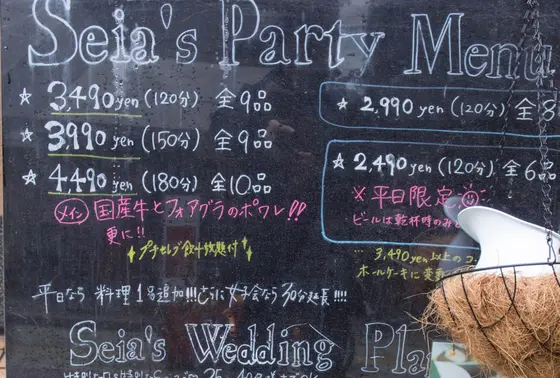 Seia's Party Menu
☆ 3,490 yen (120分) 全9品
☆ 3,990 yen (150分) 全9品
☆ 4,490 yen (180分) 全10品
メイン 国産牛とフォアグラのポワレ!!
更に!!
プチセレブ飲み放題付
☆ 2,990 yen (120分) 全8
☆ 2,490 yen (120分) 全6品
※平日限定
ビールは乾杯時のみ
… 3,490yen以上の
ホールケーキに変更
平日なら 料理1品追加!!! さらに女子会なら30分延長!!!!
Seia's Wedding Pla